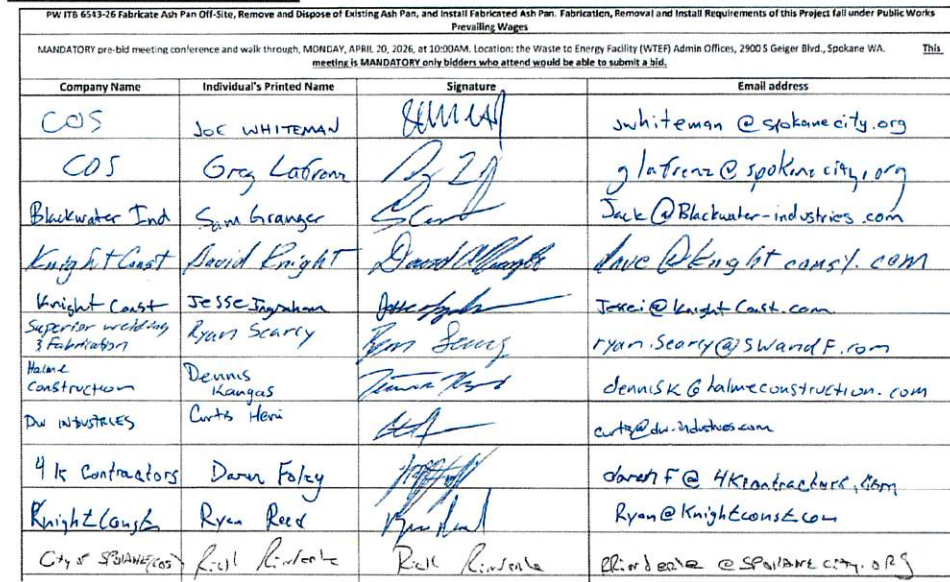 PW ITB 6543-26 Fabricate Ash Pan Off-Site, Remove and Dispose of Existing Ash Pan, and Install Fabricated Ash Pan. Fabrication, Removal and Install Requirements of this Project fall under Public Works
Prevailing Wages
MANDATORY pre-bid meeting conference and walk through, MONDAY, APRIL 20, 2026, at 10:00AM. Location: the Waste to Energy Facility (WTEF) Admin Offices, 2900 S Geiger Blvd., Spokane WA. This
meeting is MANDATORY only bidders who attend would be able to submit a bid.
Company Name Individual's Printed Name Signature Email address
COS JOE WHITEMAN jwhiteman@spokanecity.org
COS Greg LaFrenz glafrenz@spokanecity.org
Blackwater Ind Sam Granger Jack@Blackwater-industries.com
Knight Const David Knight
Knight Const Jesse Ingraham Jessei@KnightConst.com
Superior welding
& Fabrication Ryan Searcy Ryan Searcy ryan.searcy@SWandF.com
Halme
Construction Dennis
Kangas dennisk@halmeconstruction.com
DW INDUSTRIES Curtis curtis@dw-industries.com
4K Contractors Daren Foley darenF@4Kcontractors.com
Knight Const Ryan Reed Ryan@Knightconst.com
City of SPOKANE (COS) Rick Rinderle Rick Rinderle RRinderle@SPOKANEcity.ORG